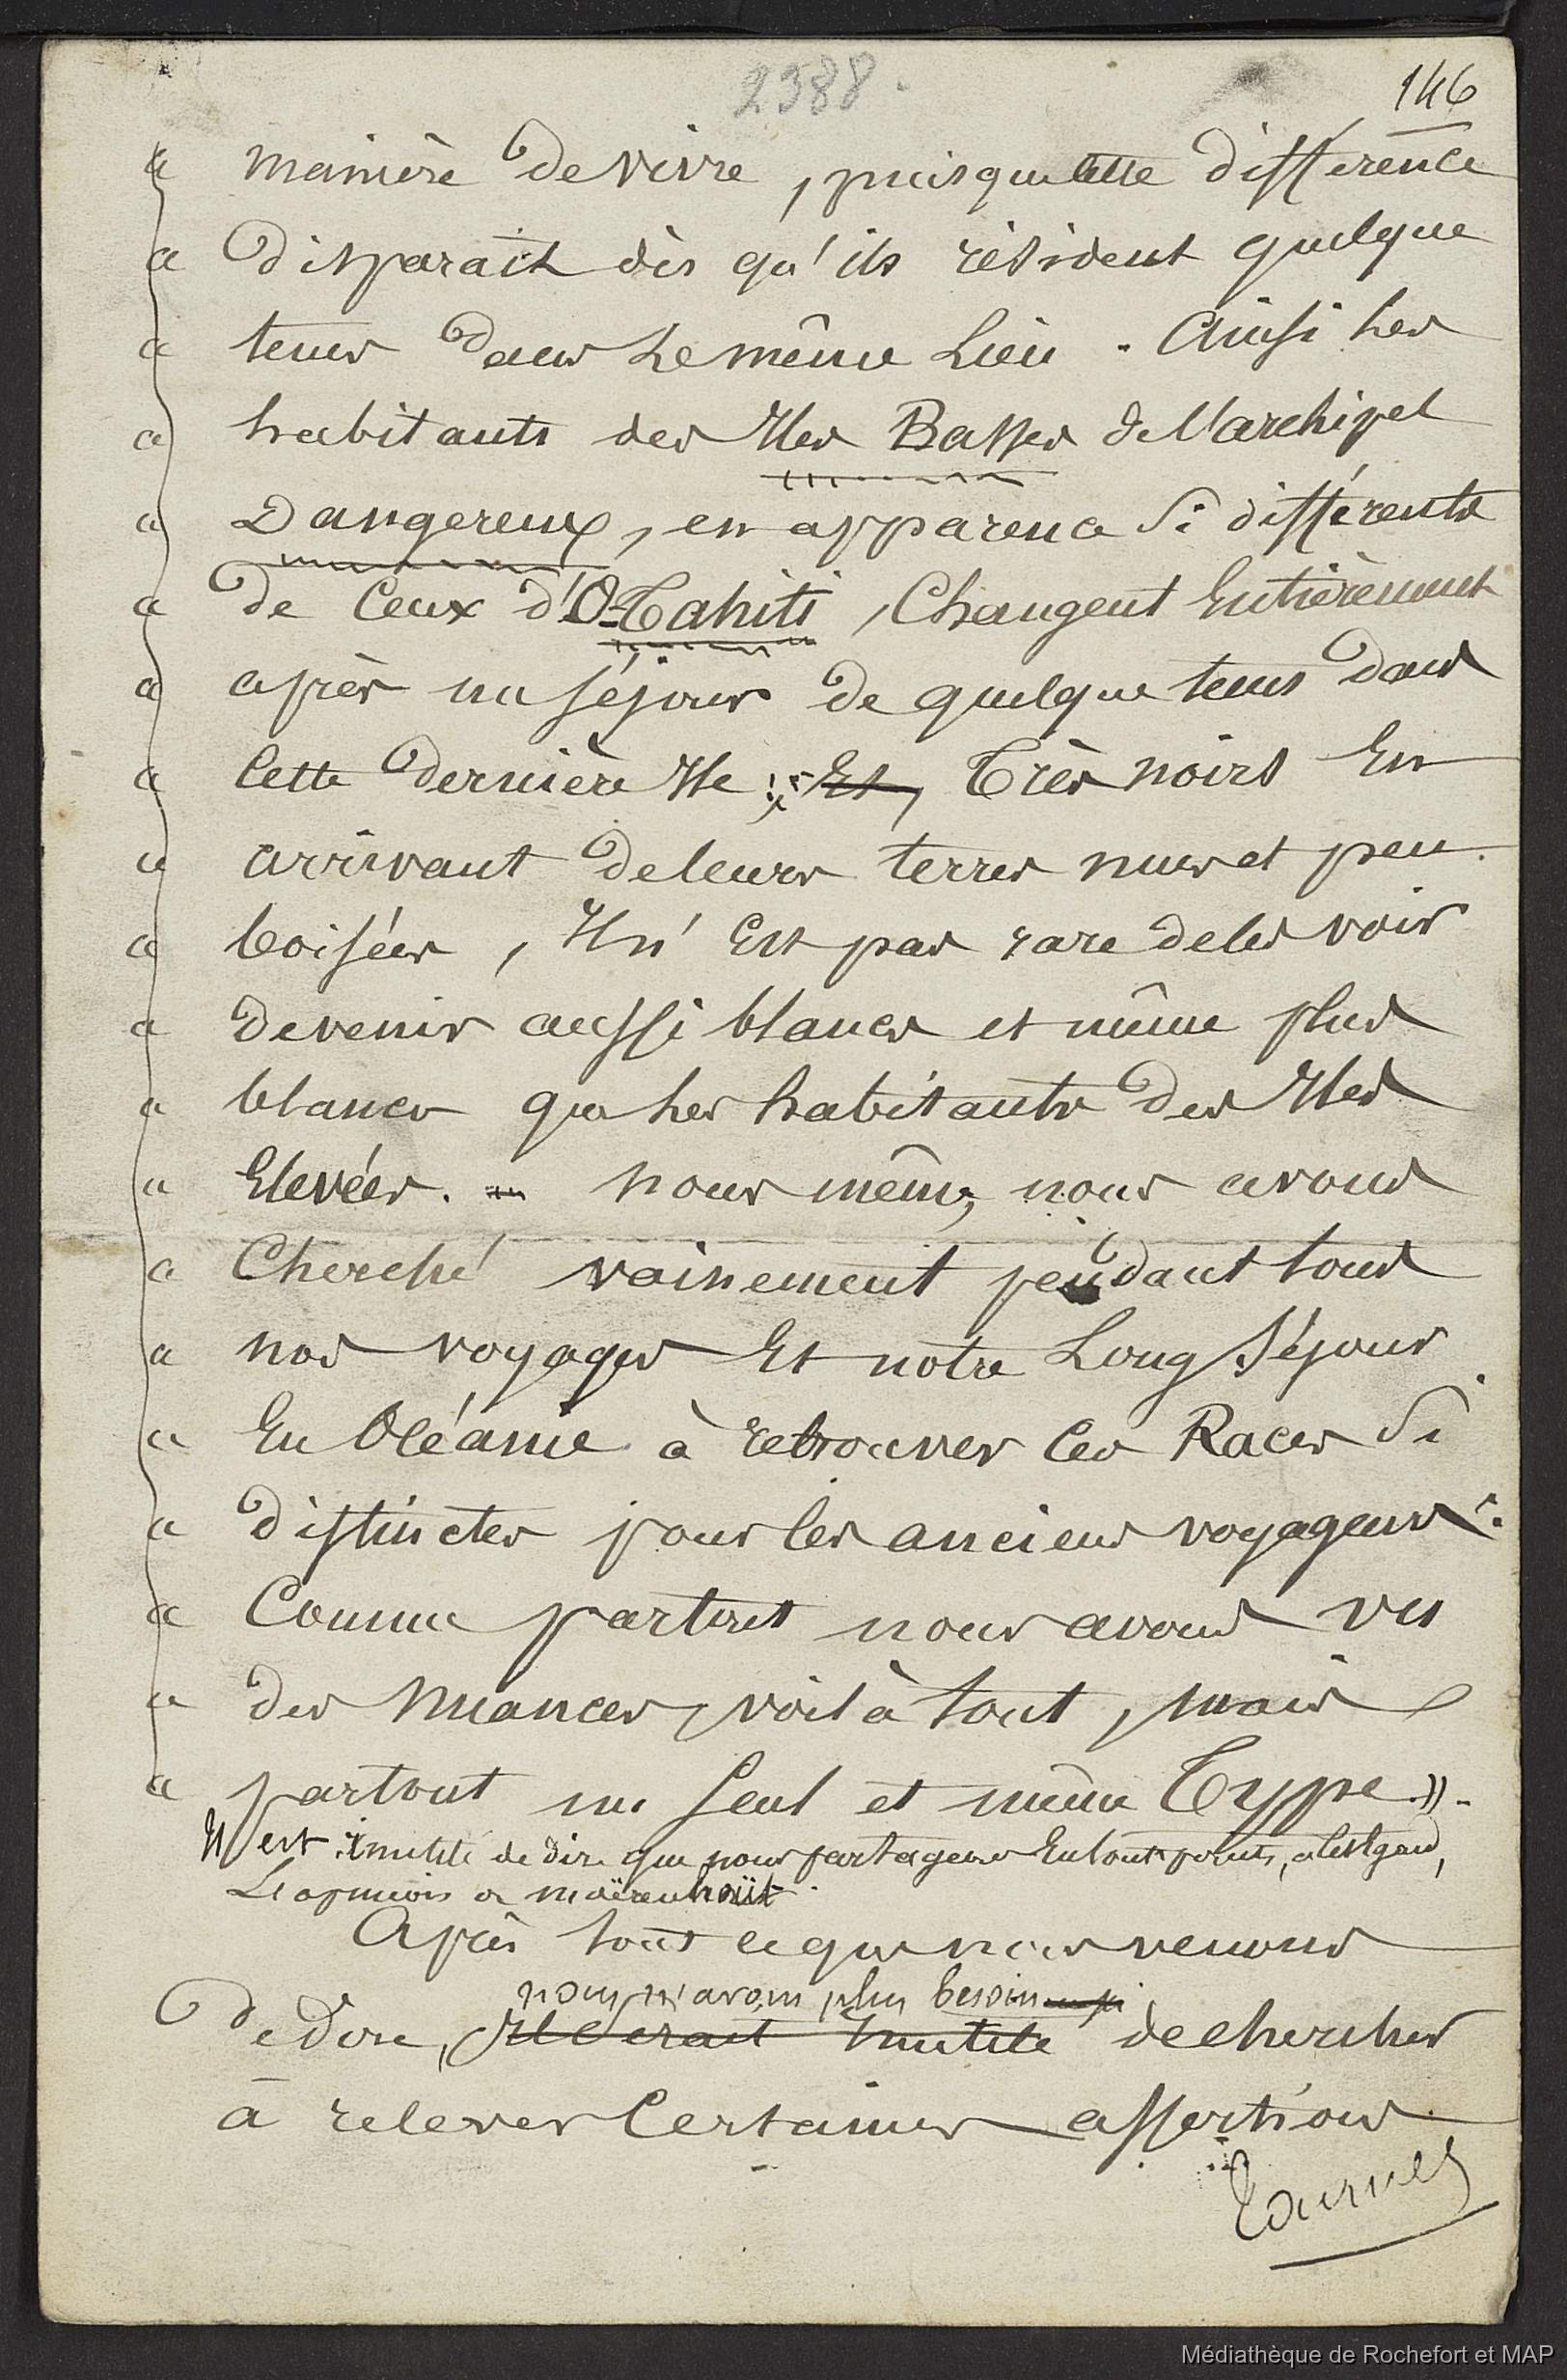 2388.
146
« manière de vivre, puisque cette différence
« disparait dès qu'ils résident quelque
« tems dans le même lieu. Ainsi les
« habitants des Iles Basses de l'archipel
« Dangereux, en apparence si différents
« de ceux d'O-Tahiti, Changent Entièrement
« après un séjour de quelque tems dans
« cette dernière Ile; Et, Très noirs En
« arrivant de leurs terres nues et peu
« boisées, Il n'Est pas rare de les voir
« devenir aussi blancs et même plus
« blancs que les habitants des Iles
« Elevées. nous même, nous avons
« Cherché vainement pendant tous
« nos voyages Et notre Long Séjour
« En Océanie à retrouver ces Races si
« distinctes pour les anciens voyageurs.
« Comme partout nous avons vu
« des nuances, voilà tout, mais
« partout un seul et même Type. ».
Il est inutile de dire que nous partageons En tous points, à cet égard,
L'opinion de Moërenhoüt.
Après tout ce que nous venons
nous n'avons plus besoin
de dire, Il Serait Inutile de chercher
à relever Certaines assertions
Tournez
Médiathèque de Rochefort et MAP